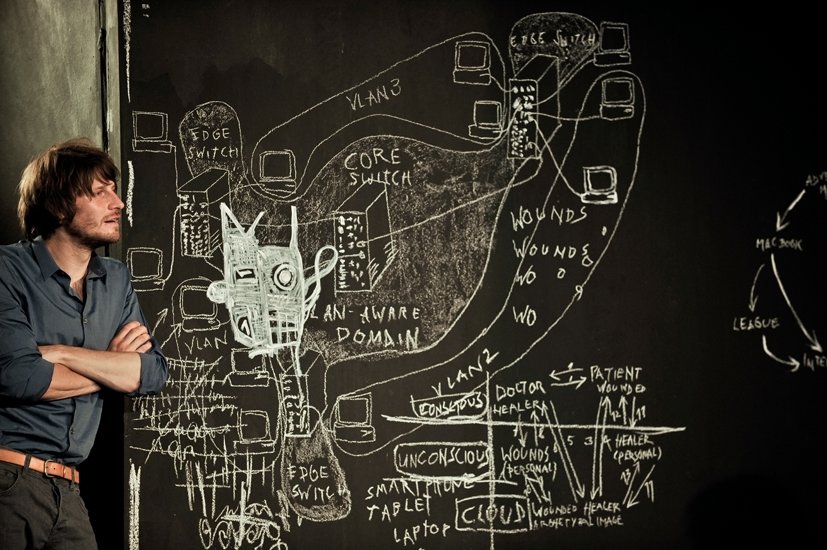 EDGE SWITCH
VLAN3
EDGE
SWITCH
CORE
SWITCH
WOUNDS
WOUNDS
WO
WO
MACBOOK
LEAGUE
DOMAIN
VLAN
VLAN2
CONSCIOUS
DOCTOR
HEALER
PATIENT
WOUNDED
UNCONSCIOUS
WOUNDS
(PERSONAL)
5 3 4
HEALER
(PERSONAL)
EDGE
SWITCH
SMARTPHONE
TABLET
LAPTOP
CLOUD
WOUNDED HEALER
ARCHETYPAL IMAGE